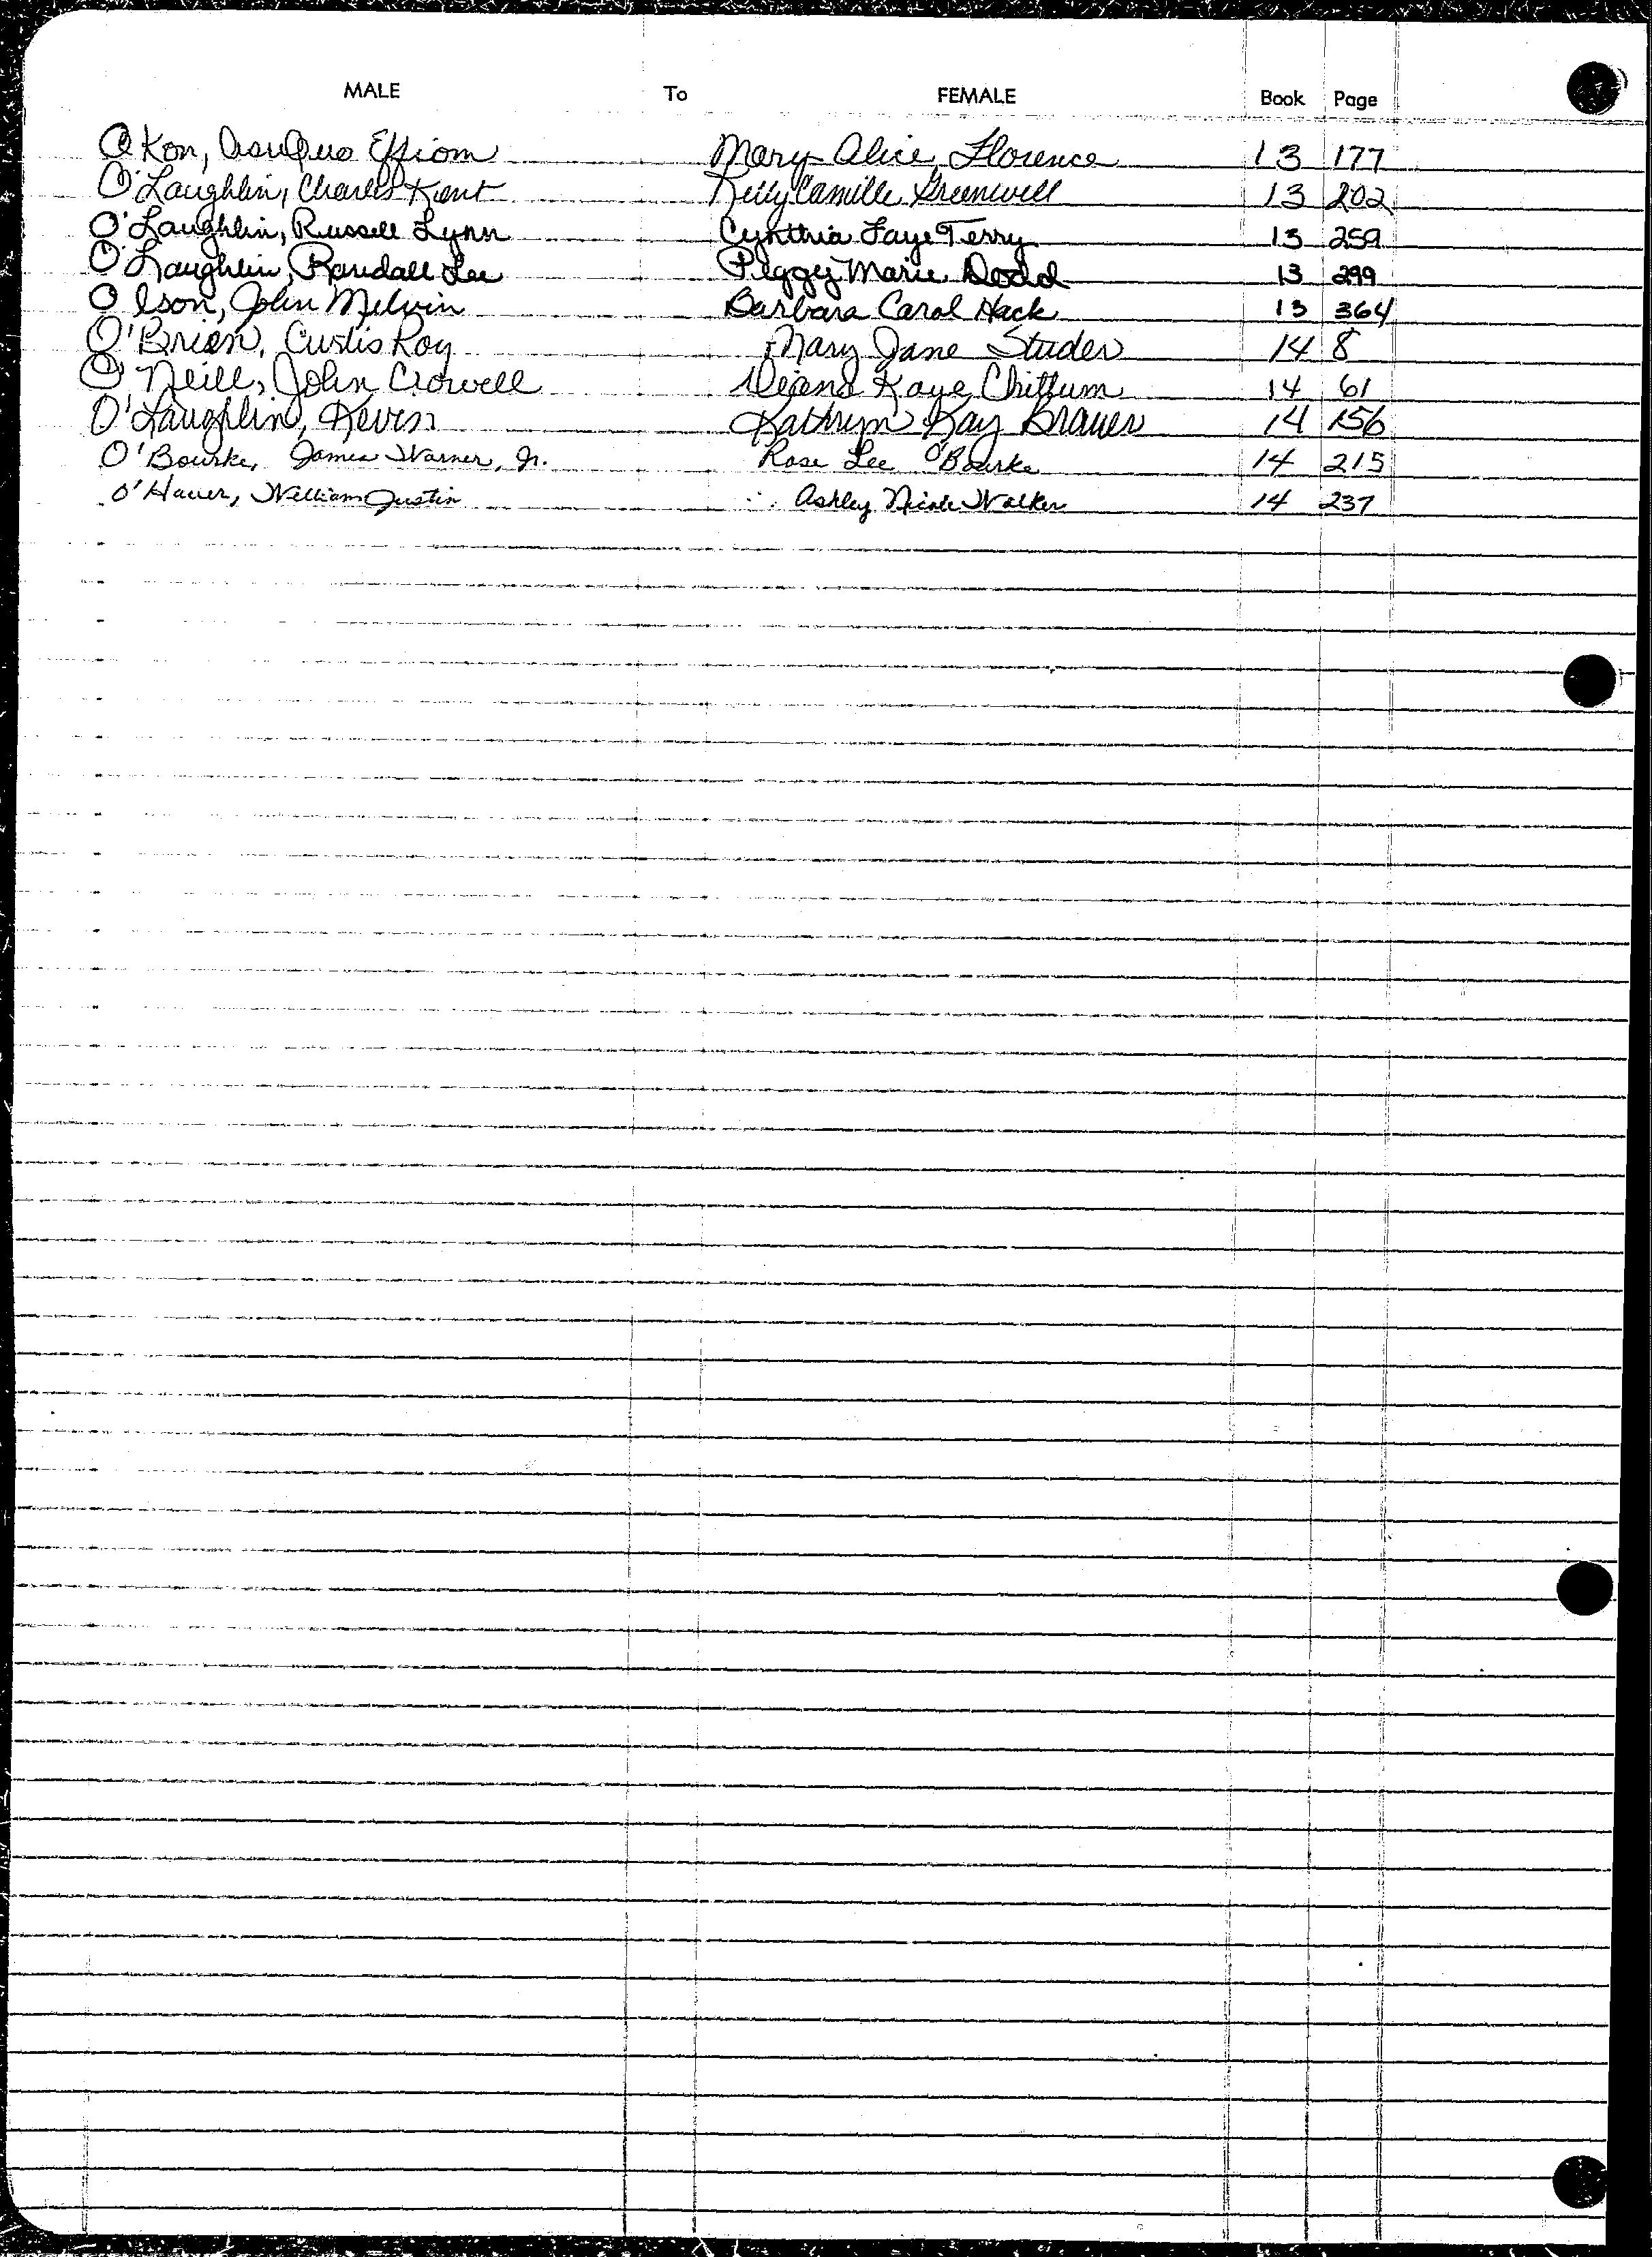 MALE To FEMALE Book Page
OKon, Effiom Mary Alice Florence 13 177
O'Laughlin, Charles Kent Kelly Camille Greenwell 13 202
O'Laughlin, Russell Lynn Cynthia Faye Terry 13 259
O'Laughlin, Randall Lee Peggy Marie Dodd 13 299
Olson, John Melvin Barbara Carol Hack 13 364
O'Brien, Curtis Roy Mary Jane Studer 14 8
O'Neill, John Crowell Kaye Chittum 14 61
O'Laughlin, Kevin Kathryn Kay Brauer 14 156
O'Bourke, James Warner, Jr. Rose Lee O'Bourke 14 215
O'Haver, William Justin Ashley Nicole Walker 14 237